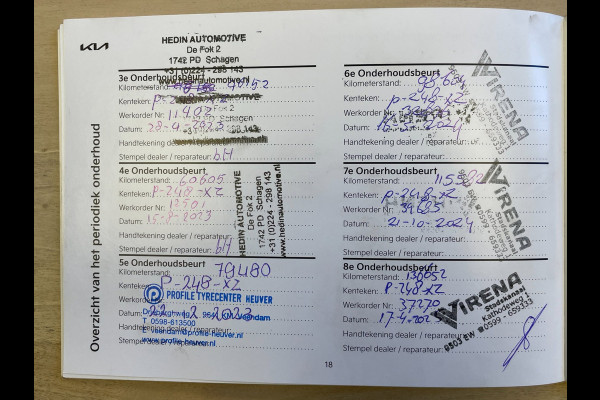 KIA
Overzicht van het periodiek onderhoud
HEDIN AUTOMOTIVE
De Fok 2
1742 PD Schagen
+31 (0)224 - 298 143
www.hedinautomotive.nl
3e Onderhoudsbeurt
Kilometerstand:
Kenteken: P-248-XZ
Werkorder Nr: 11402
Datum: 28-4-2023
Handtekening dealer / reparateur:
Stempel dealer / reparateur: bH
4e Onderhoudsbeurt
Kilometerstand: 60605
Kenteken: P-248-XZ
Werkorder Nr: 12501
Datum: 15-8-2023
Handtekening dealer / reparateur:
Stempel dealer / reparateur: bH
HEDIN AUTOMOTIVE
De Fok 2
1742 PD Schagen
+31 (0)224 - 298 143
www.hedinautomotive.nl
5e Onderhoudsbeurt
Kilometerstand: 79480
Kenteken: P-248-XZ
Werkorder
PROFILE TYRECENTER HEUVER
Datum: 2023
T 0598-613500
Handtekening dealer / reparateur:
E veendam@profile-heuver.nl
www.profile-heuver.nl
Stempel dealer / reparateur:
6e Onderhoudsbeurt
Kilometerstand: 95604
Kenteken: P-248-XZ
Werkorder Nr:
Datum: 2024
Handtekening dealer / reparateur:
Stempel dealer / reparateur:
VIRENA
7e Onderhoudsbeurt
Kilometerstand:
Kenteken: P-248-XZ
Werkorder Nr: 34685
Datum: 21-10-2024
Handtekening dealer / reparateur:
Stempel dealer / reparateur:
VIRENA
Stadskanaal
Kathodeweg
0599 - 659333
8e Onderhoudsbeurt
Kilometerstand: 136052
Kenteken: P-248-XZ
Werkorder Nr: 37270
Datum: 17-4-202
Handtekening dealer / reparateur:
Stempel dealer / reparateur:
VIRENA
Stadskanaal
Kathodeweg
9503 EW 0599 - 659333
18